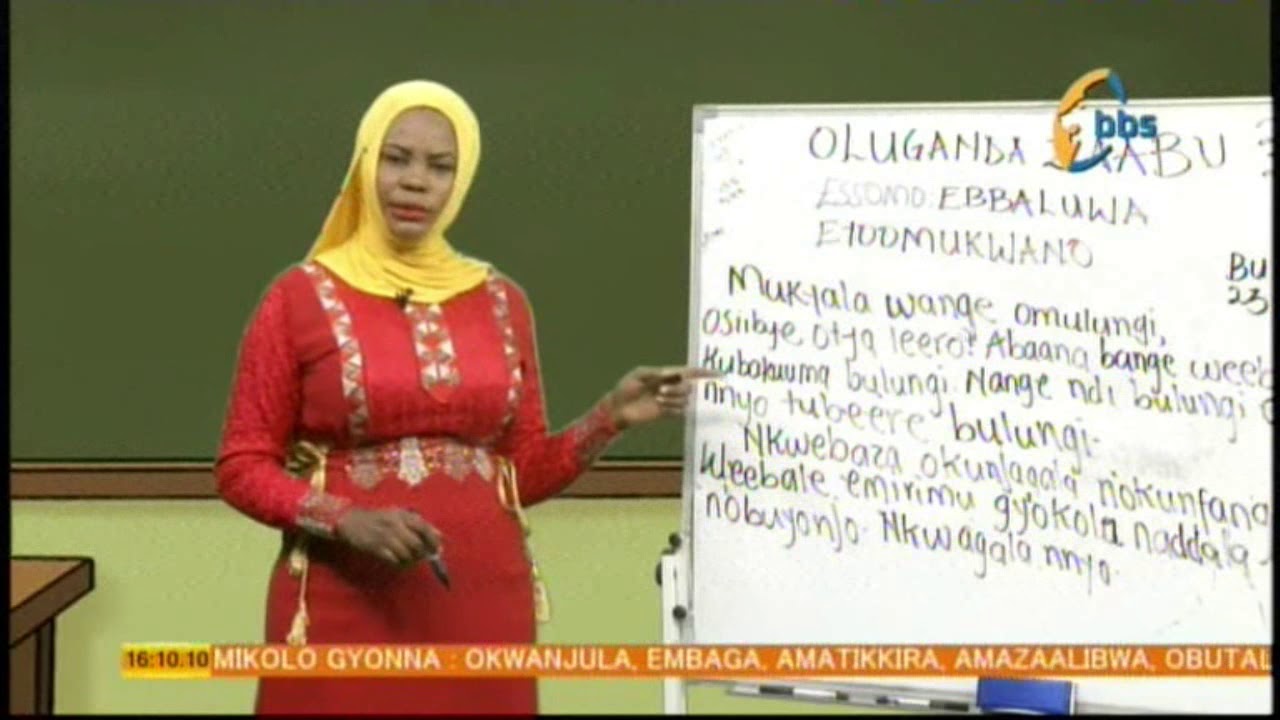 bbs
OLUGANDA
ESSOMO: EBBALUWA
EY'OOMUKWANO
BU
23
Mukyala wange omulungi,
Osiibye otya leero? Abaana bange weeb
kubakuuma bulungi. Nange ndi bulungi
nnyo tubeere bulungi.
Nkwebaza okunjagala n'okunfana
Weebale emirimu gyokola naddala
n'obuyonjo. Nkwagala nnyo.
16:10.10 MIKOLO GYONNA : OKWANJULA, EMBAGA, AMATIKKIRA, AMAZAALIBWA, OBUTAL